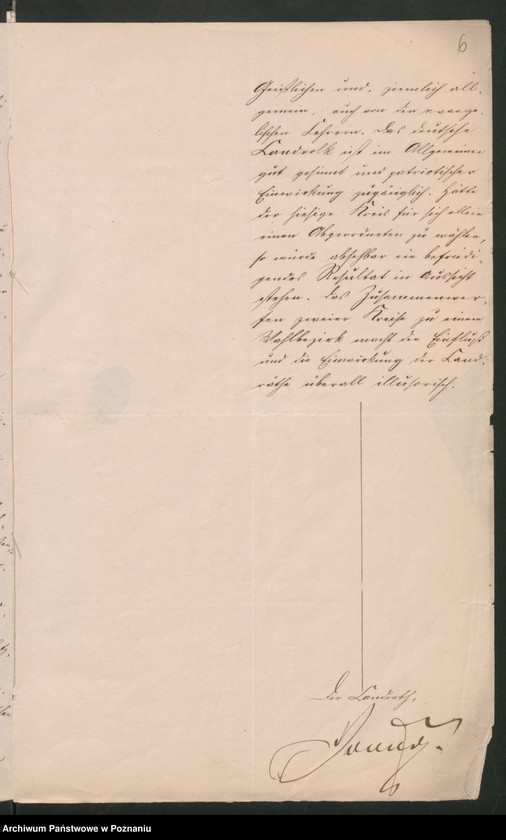 6
Geistlichen und, ziemlich all-
gemein, auch von den evange-
lischen Lehrern. Das deutsche
Landvolk ist im Allgemeinen
gut gesinnt und patriotischer
Einwirkung zugänglich. Hätte
der hiesige Kreis für sich allein
einen Abgeordneten zu wählen,
so würde absehbar ein befriedi-
gendes Resultat in Aussicht
stehen. Das Zusammenwer-
fen zweier Kreise zu einem
Wahlbezirk macht den Einfluß
und die Einwirkung der Land-
räthe überall illusorisch.
Der Landrath.
Archiwum Państwowe w Poznaniu